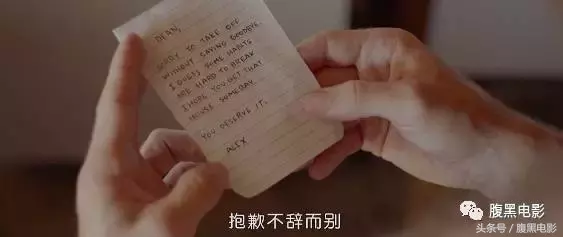 DEAN,
SORRY TO TAKE OFF
WITHOUT SAYING GOODBYE.
I GUESS SOME HABITS
ARE HARD TO BREAK
I HOPE YOU GET THAT
HOUSE SOMEDAY.
YOU DESERVE IT.
ALEX
抱歉不辞而别
腹黑电影
头条号／腹黑电影